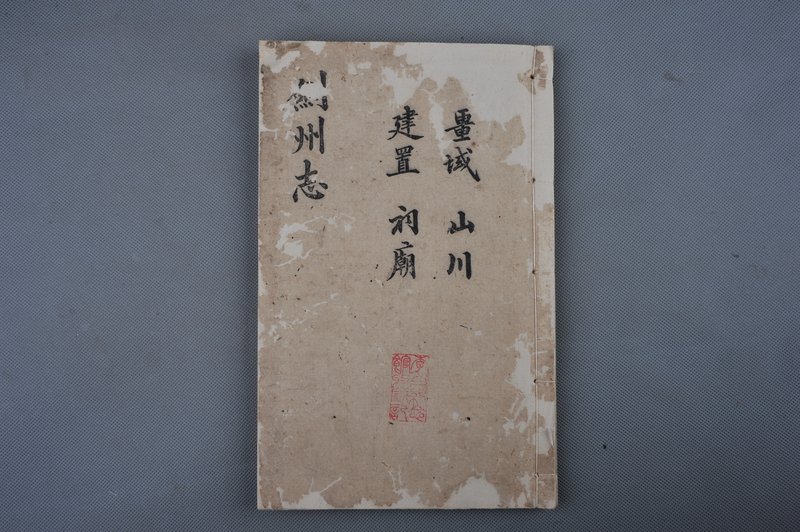 畺域 山川
建置 祠廟
薊州志